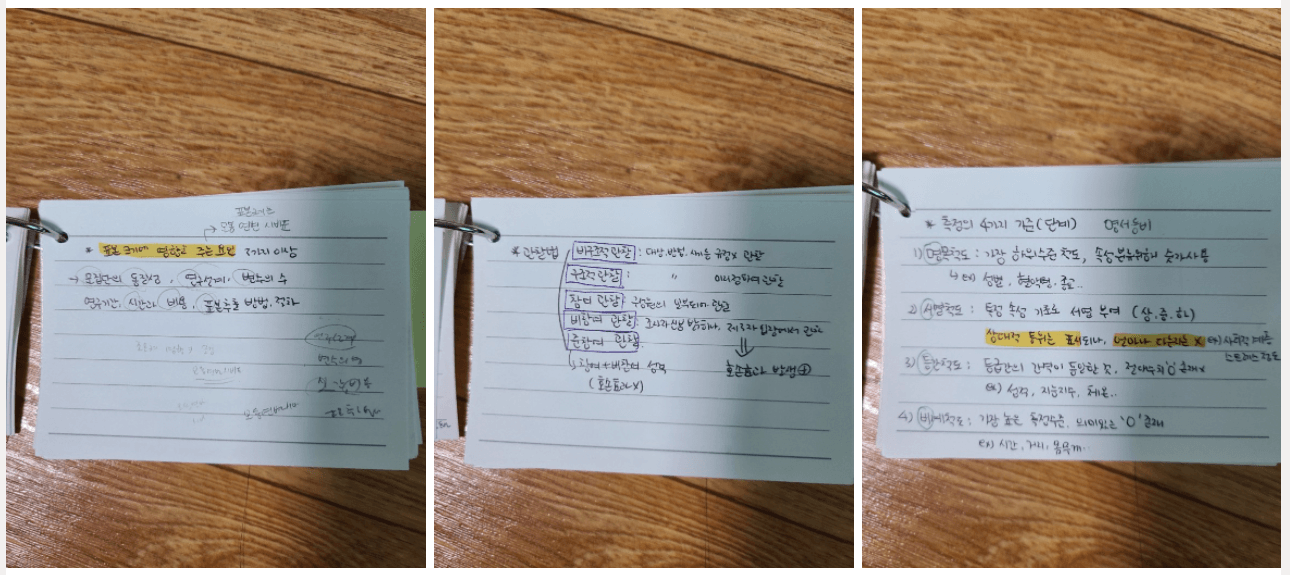 표본크기
→ 모형, 편견, 신뢰도
* 표본 크기에 영향을 주는 요인 2가지 이상
→ 모집단의 동질성, 연구설계, 변수의 수
연구기간, 시간과 비용, 표본추출 방법, 절차
* 관찰법
비구조적 관찰 : 대상, 방법, 내용 규정x 관찰
구조적 관찰 : 〃 미리 정하여 관찰
참여 관찰 : 구성원의 일부되어 관찰
비참여 관찰 : 조사자 신분 밝히나, 제3자 입장에서 관찰
준참여 관찰
↳ 참여 + 비참여 성격
(호손효과 X)
호손효과 발생⊕
* 측정의 4가지 기준(단계) 명서등비
1) 명목척도 : 가장 하위수준 척도, 속성분류위해 숫자사용
↳ ex) 성별, 혈액형, 종교..
2) 서열척도 : 특정 속성 기초로 서열 부여 (상.중.하)
상대적 등위는 표시되나, 얼마나 다른지는 X ex) 사회적 계층
스트레스 정도
3) 등간척도 : 등급간의 간격이 동일한 것, 절대수치'0' 존재x
ex) 성적, 지능지수, 체온..
4) 비례척도 : 가장 높은 측정수준, 의미있는 '0' 존재
ex) 시간, 거리, 몸무게...